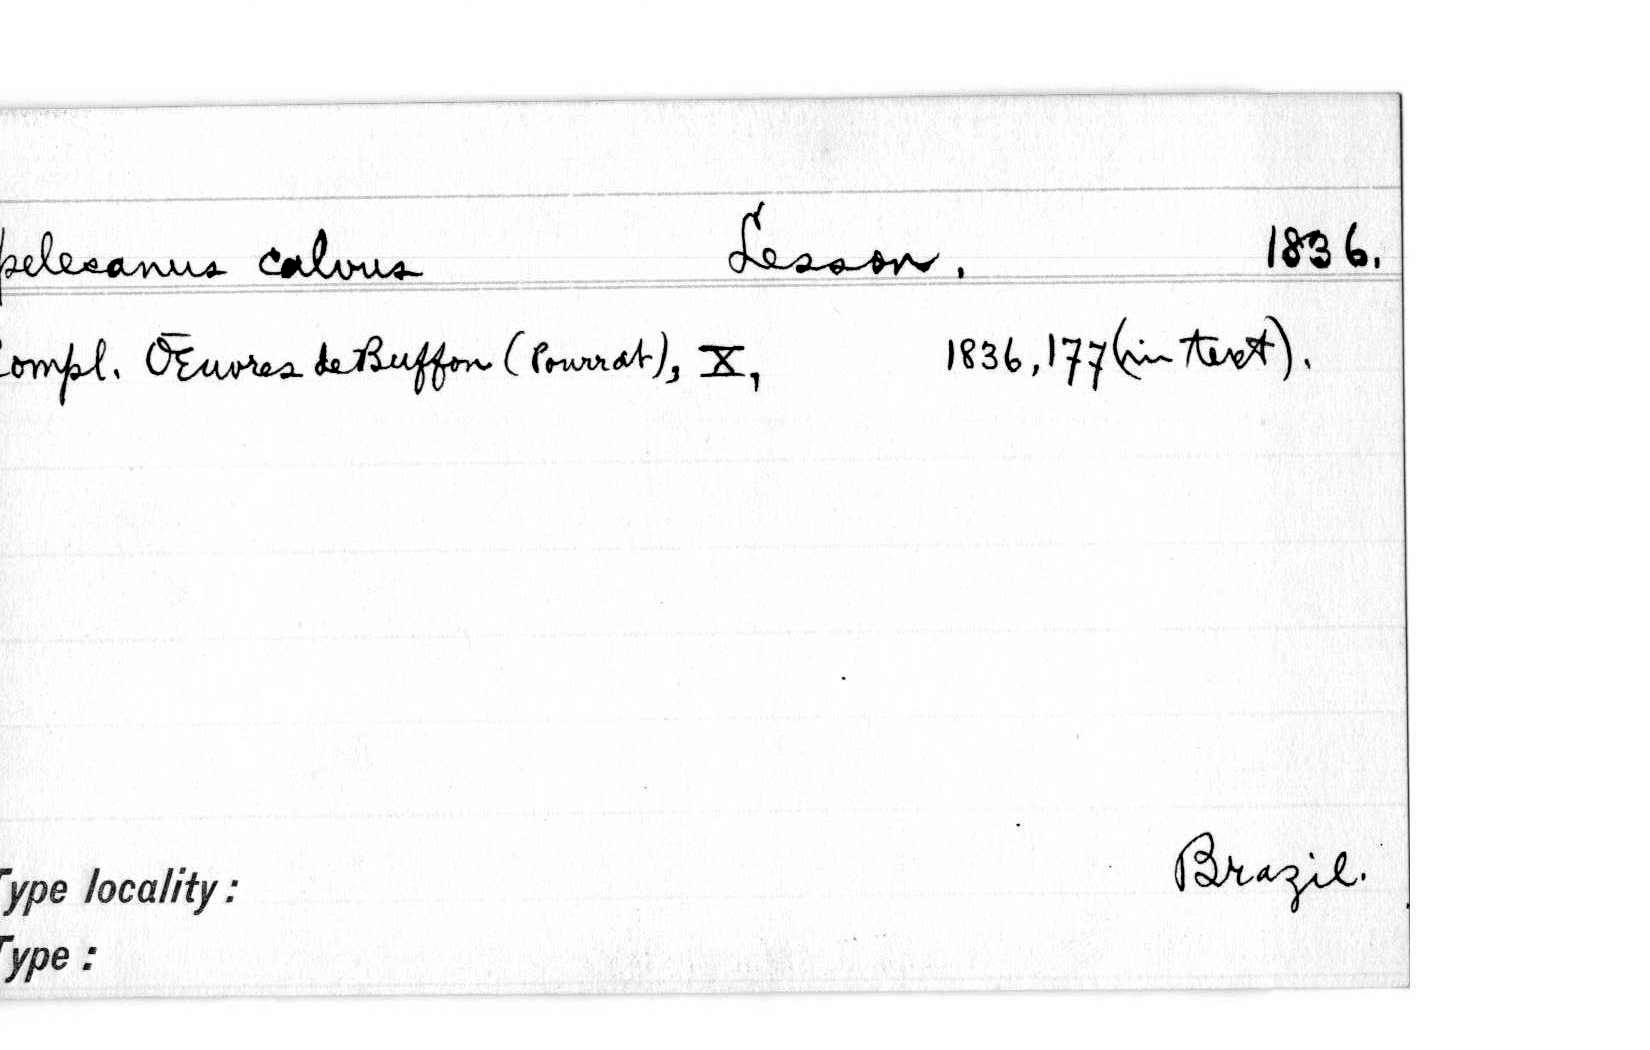 pelecanus calvus Lesson. 1836.
Compl. Œuvres de Buffon (Pourrat), X, 1836, 177 (in text).
Type locality: Brazil.
Type: